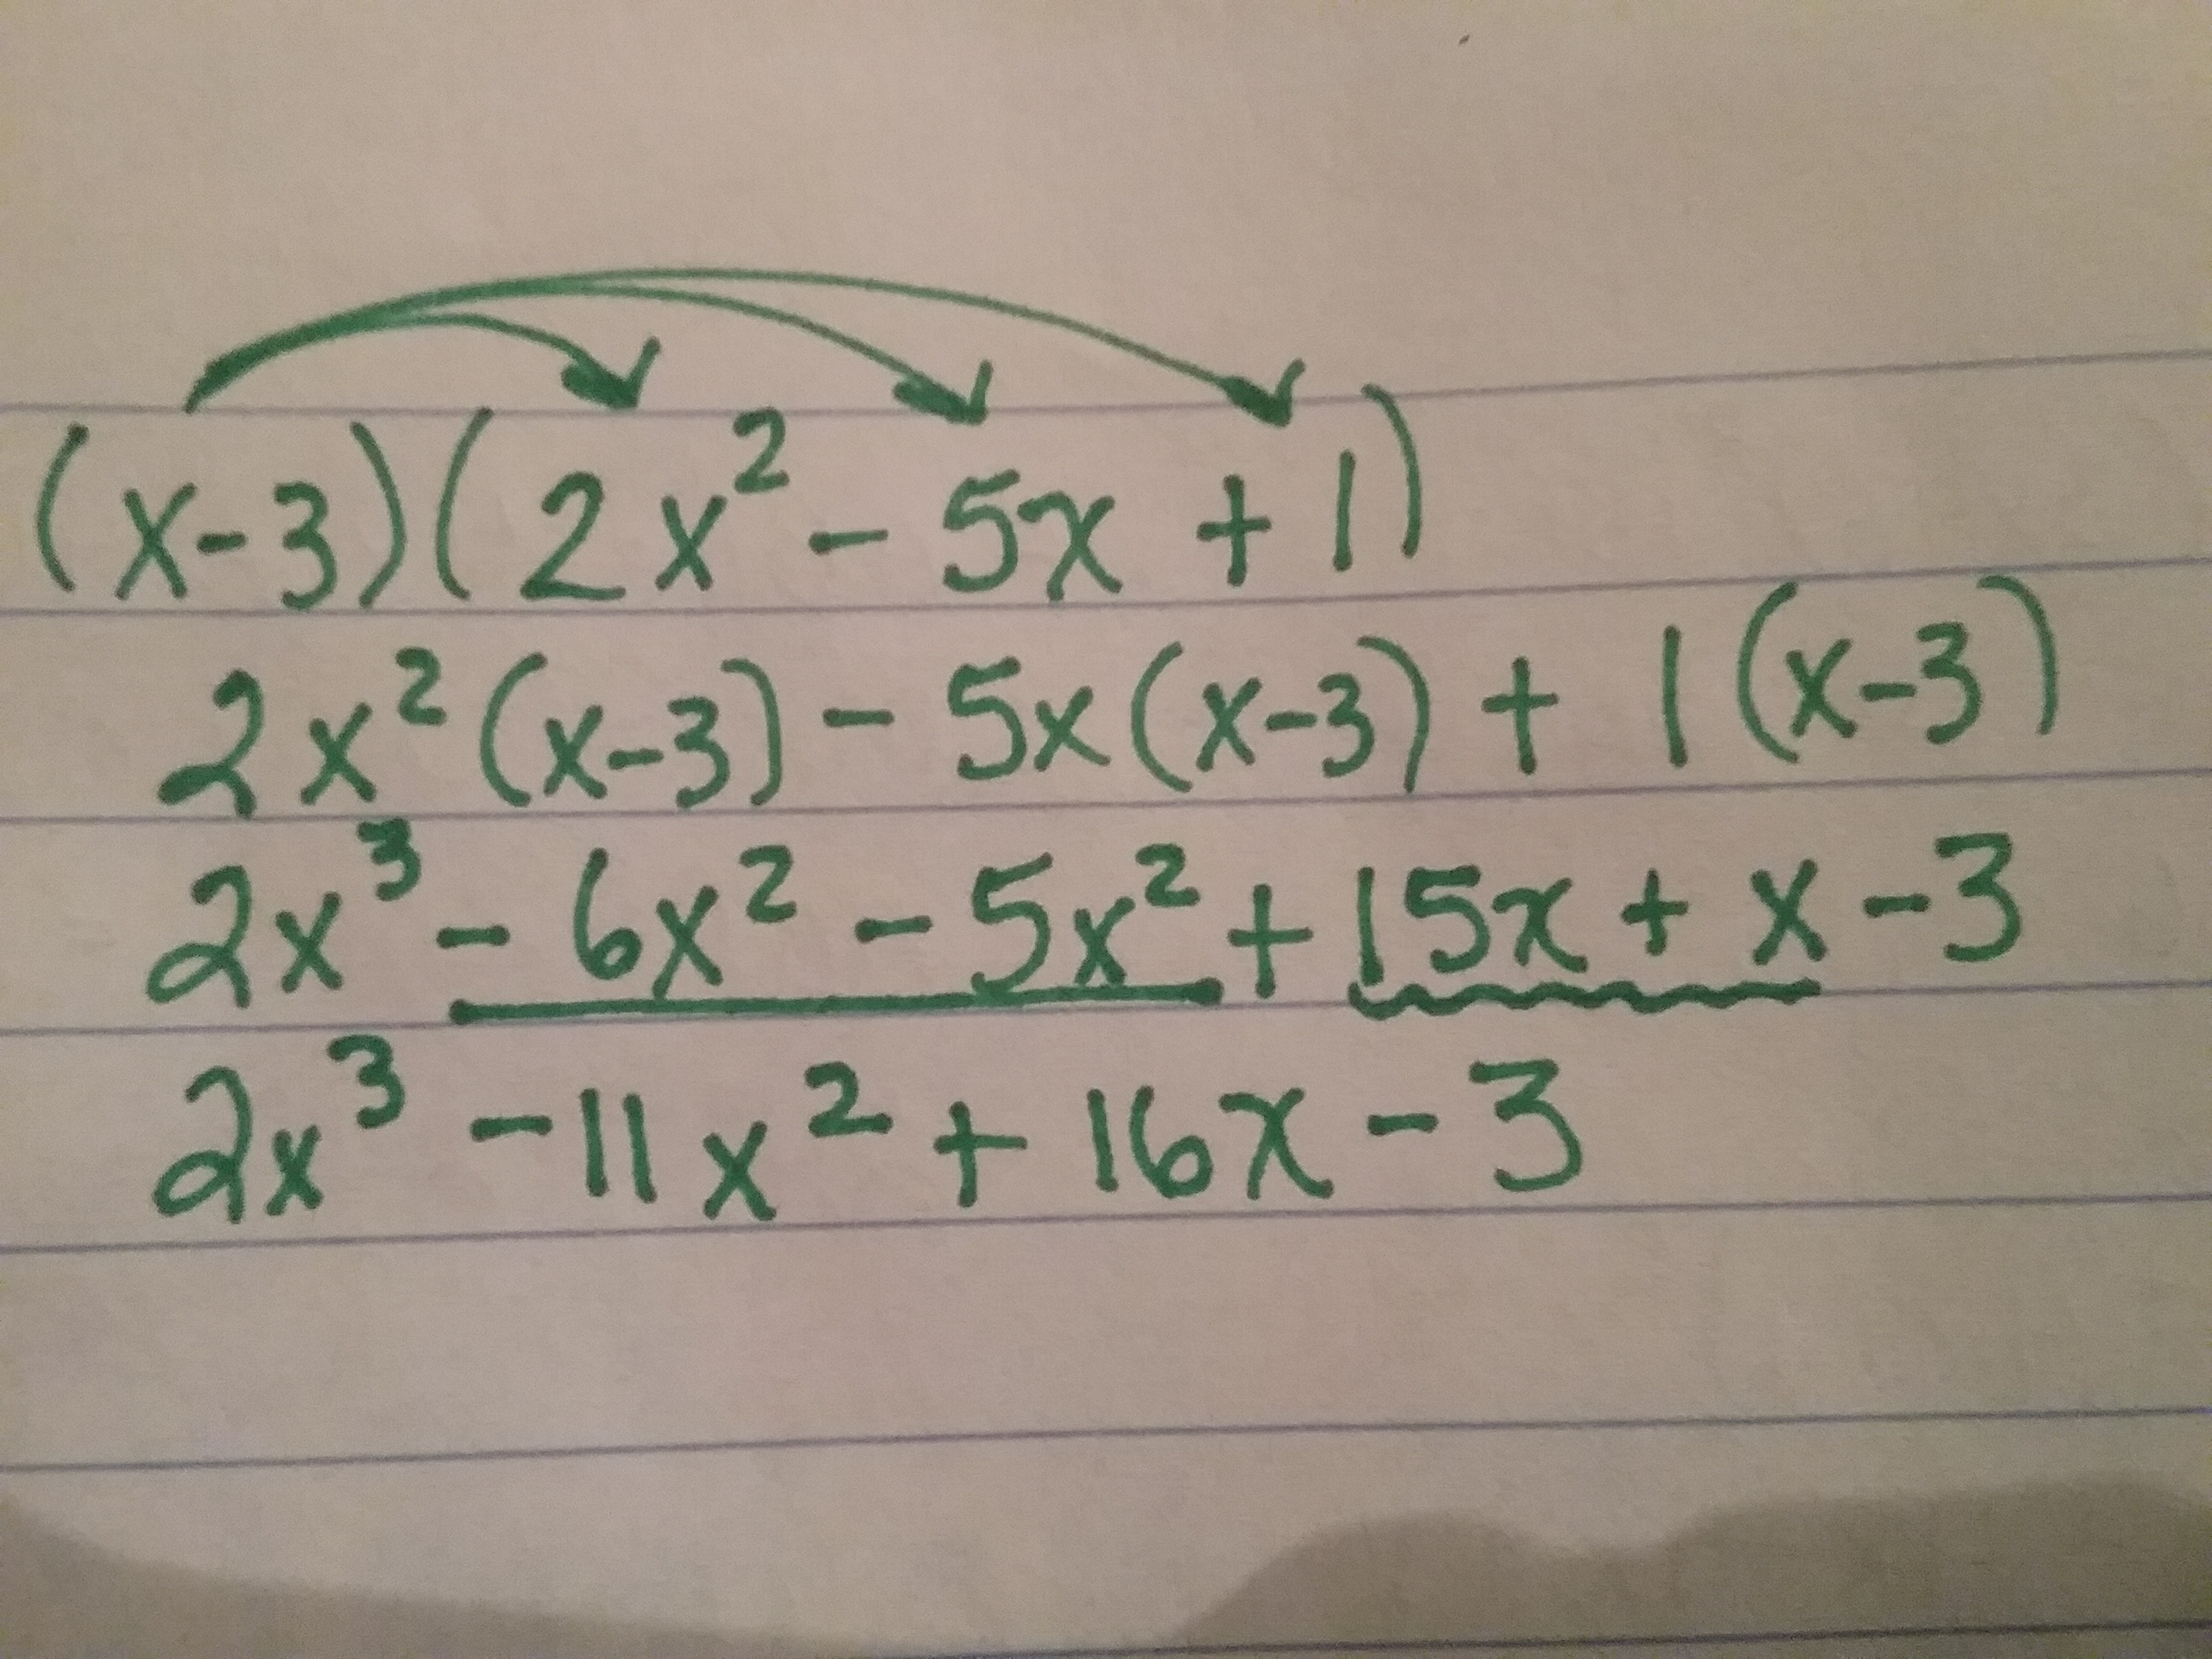 (x-3)(2x² - 5x + 1)
2x²(x-3) - 5x(x-3) + 1(x-3)
2x³ - 6x² - 5x² + 15x + x - 3
2x³ - 11x² + 16x - 3